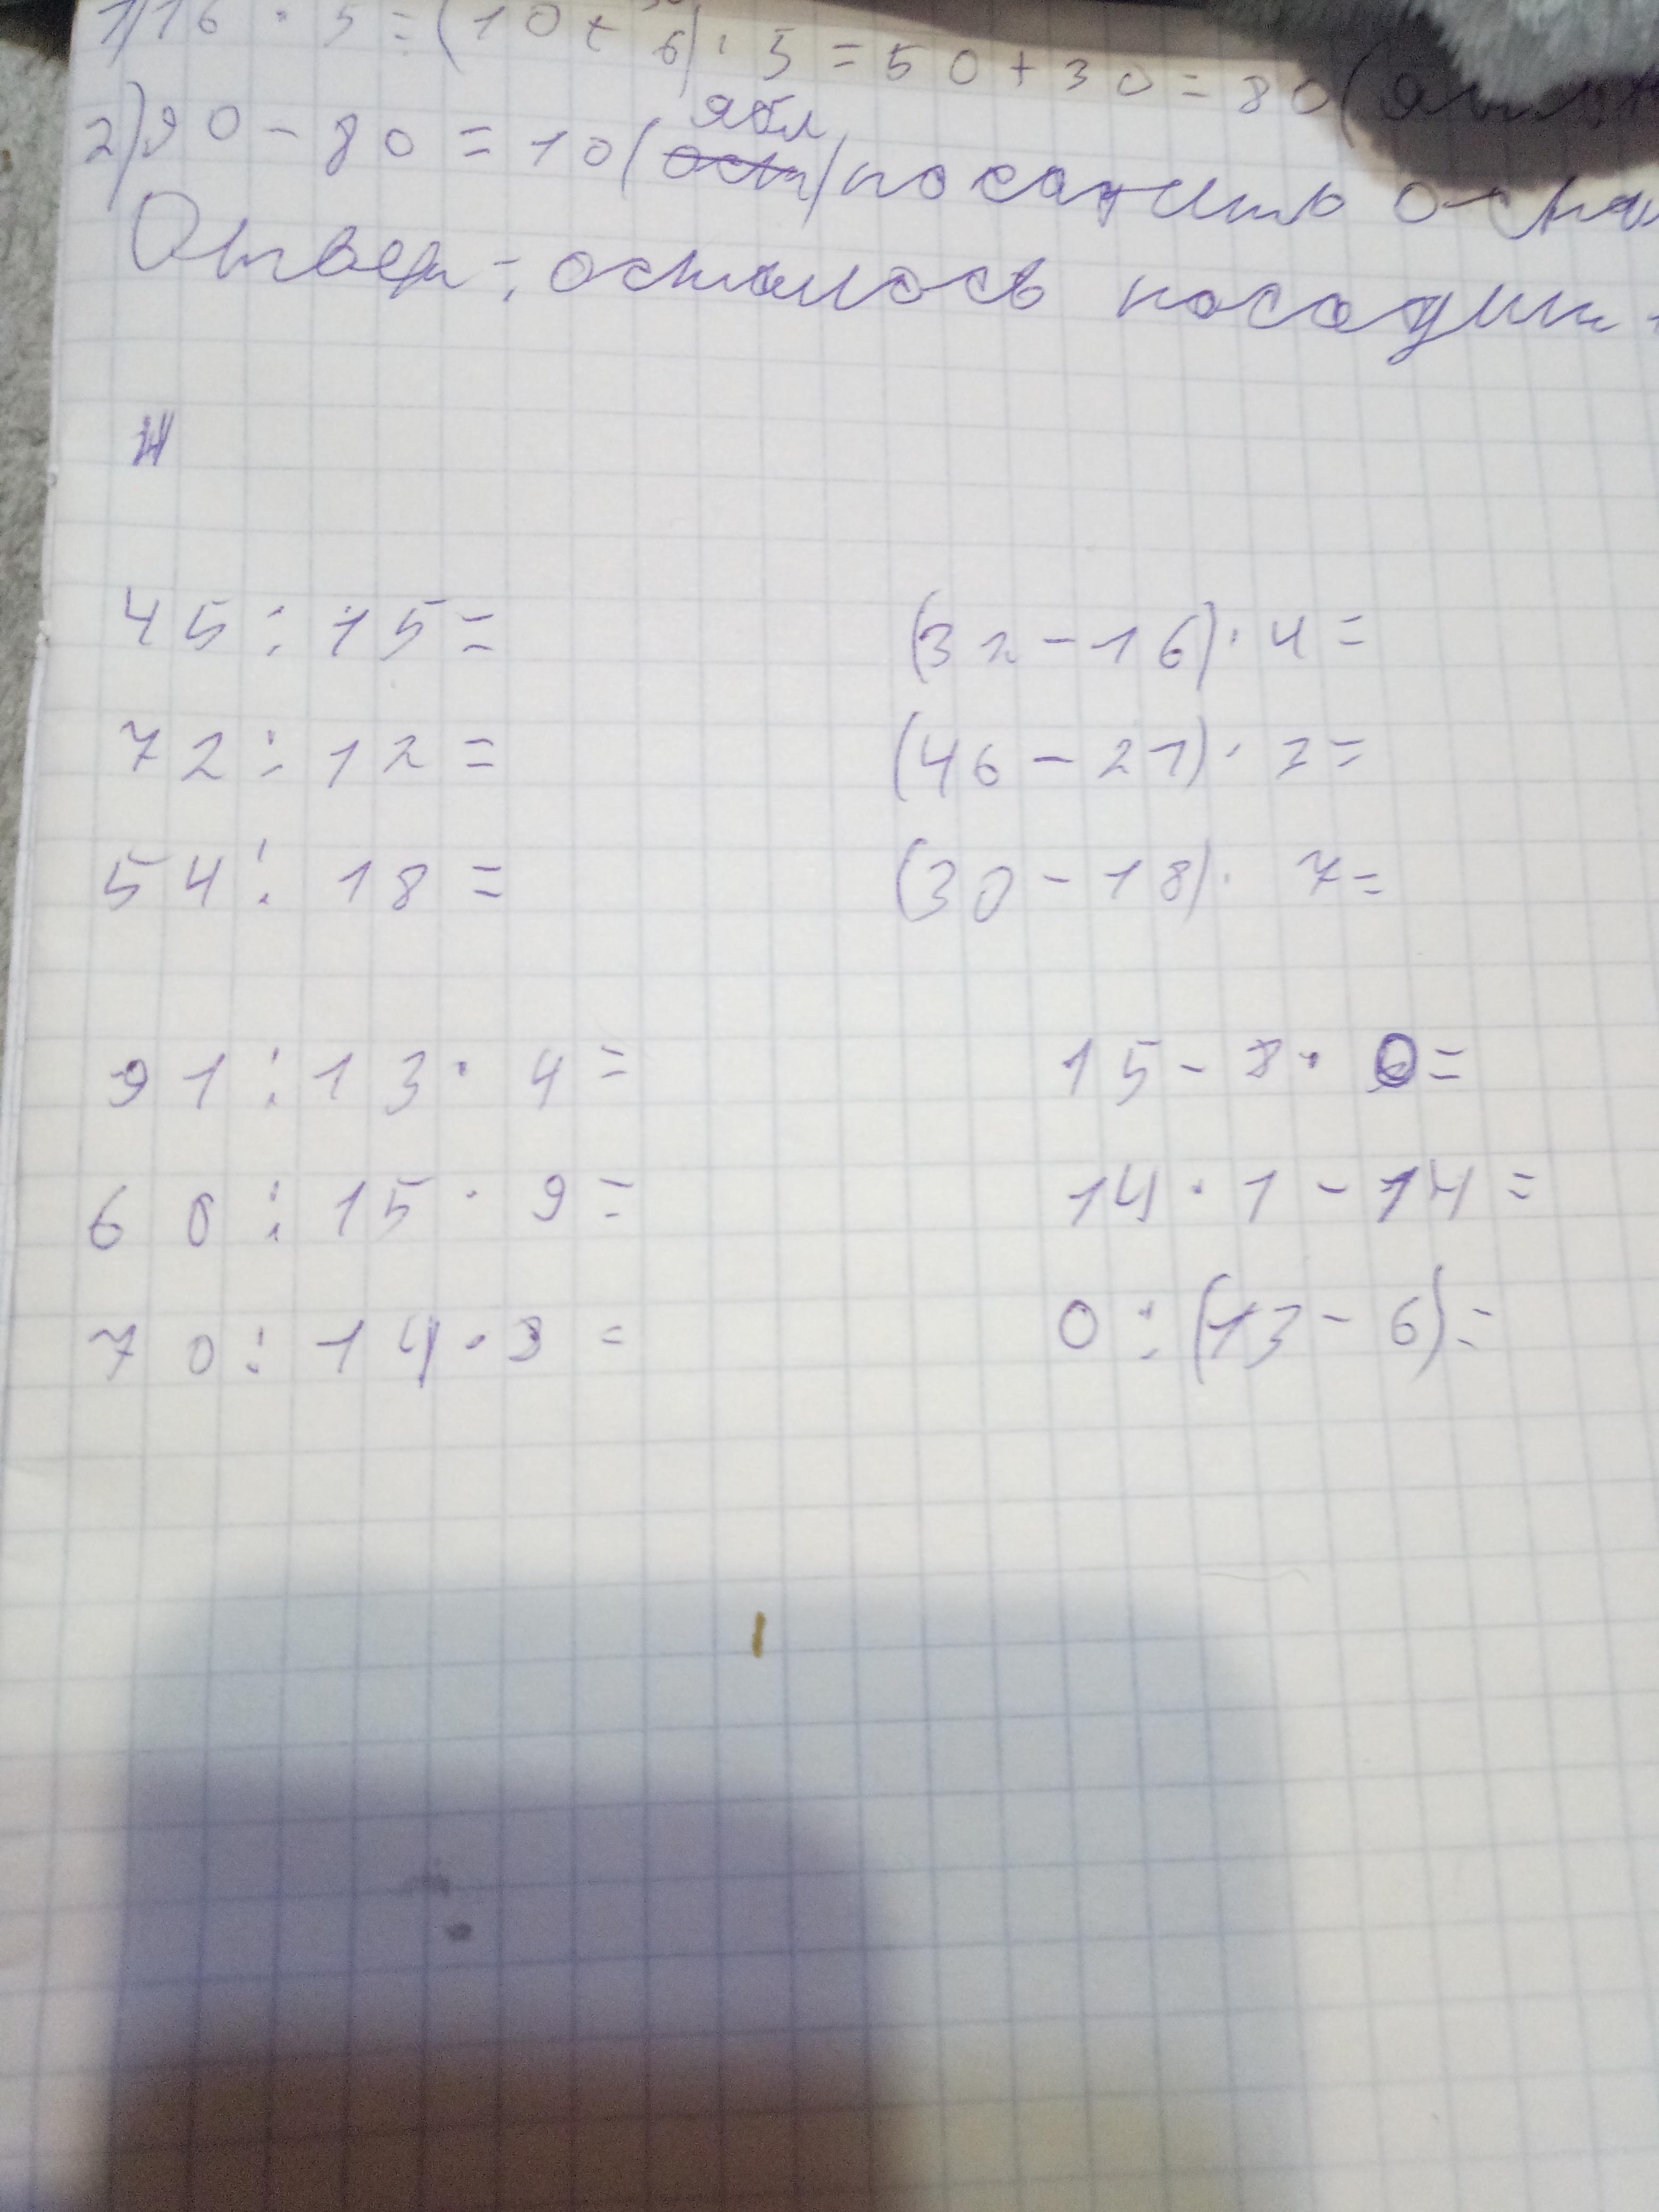 1) 16 · 5 = (10 + 6) · 5 = 50 + 30 = 80 (
2) 90 - 80 = 10 (ост) ябл посадить оста
Ответ: осталось посадить
45 : 15 =
72 : 12 =
54 : 18 =
(32 - 16) · 4 =
(46 - 21) · 3 =
(30 - 18) · 7 =
91 : 13 · 4 =
60 : 15 · 9 =
70 : 14 · 3 =
15 - 8 · 0 =
14 · 1 - 14 =
0 : (13 - 6) =